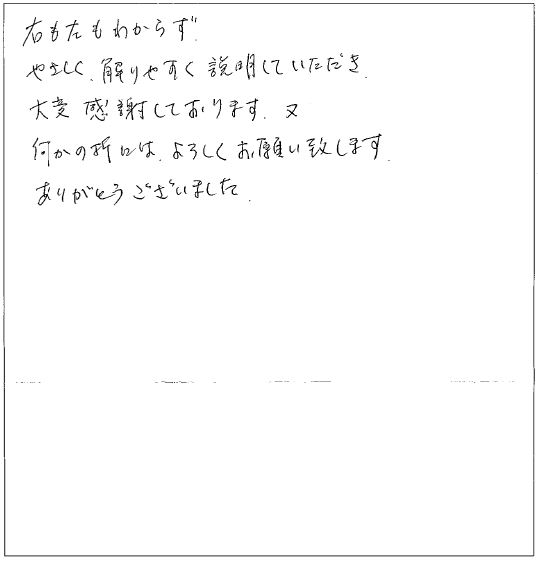 右も左もわからず.
やさしく.解りやすく説明していただき.
大変感謝しております.又
何かの折には.よろしくお願い致します.
ありがとうございました.